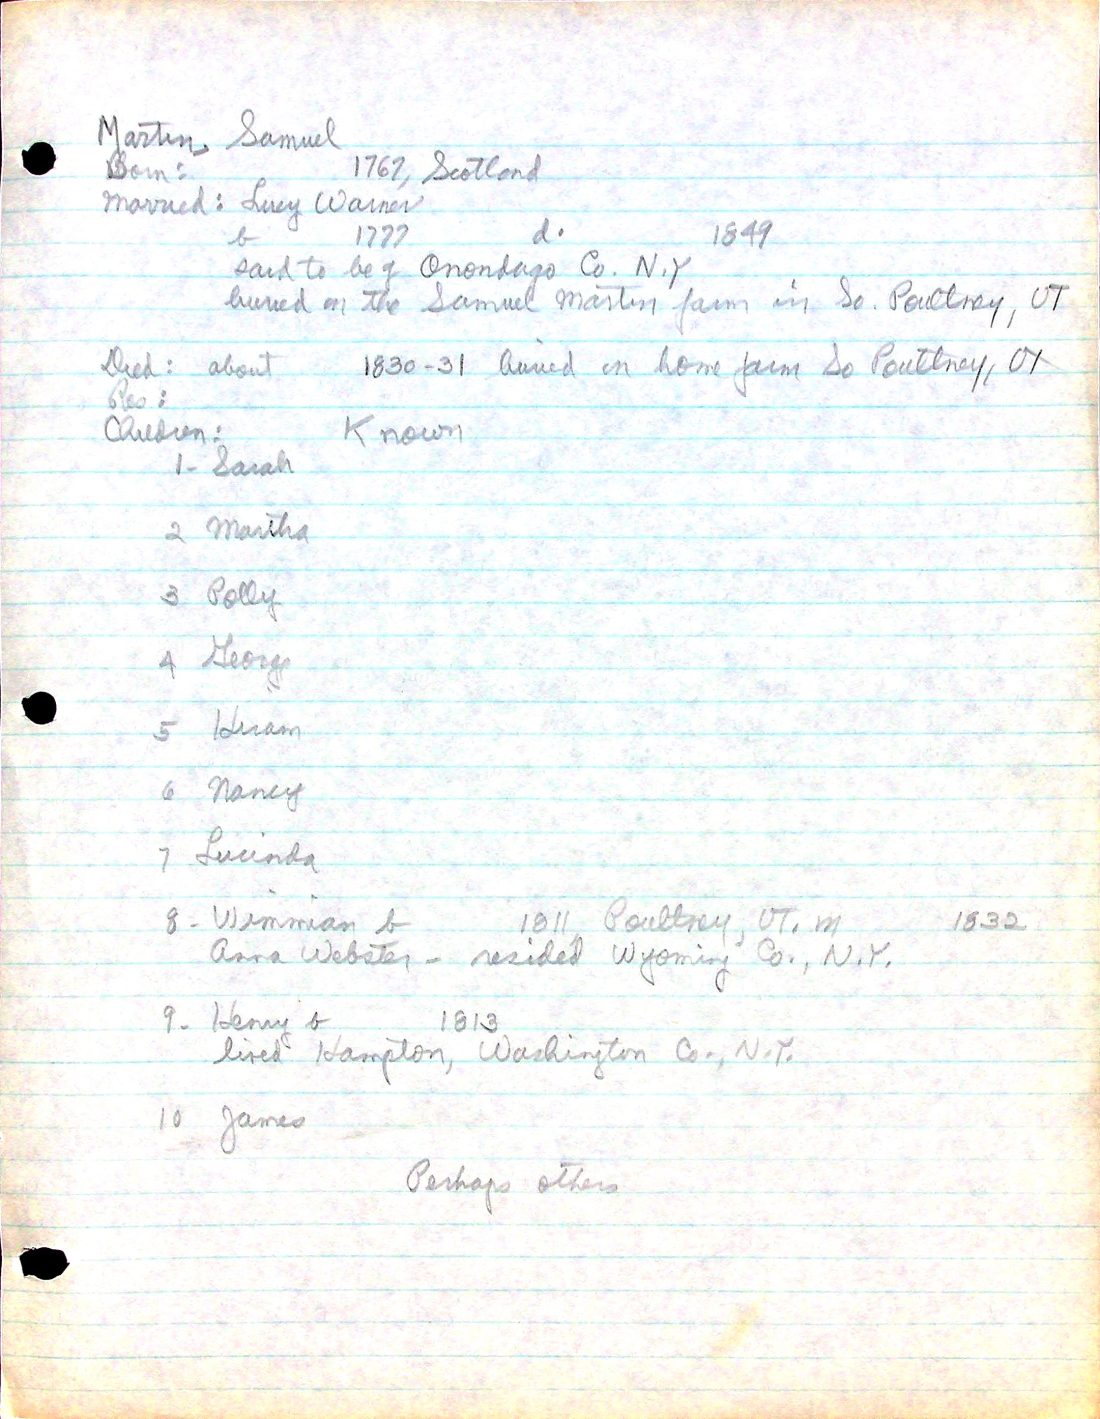 Martin, Samuel
Born: 1767, Scotland
Married: Lucy Warner
b 1777 d. 1849
said to be of Onondago Co. N.Y
buried on the Samuel Martin farm in So. Poultney, VT
Died: about 1830-31 buried on home farm So Poultney, VT
Res:
Children: Known
1- Sarah
2 Martha
3 Polly
4 George
5 Hiram
6 Nancy
7 Lucinda
8- b 1811, Poultney, VT. m 1832
Anna Webster - resided Wyoming Co., N.Y.
9- Henry b 1813
lived Hampton, Washington Co., N.Y.
10 James
Perhaps others